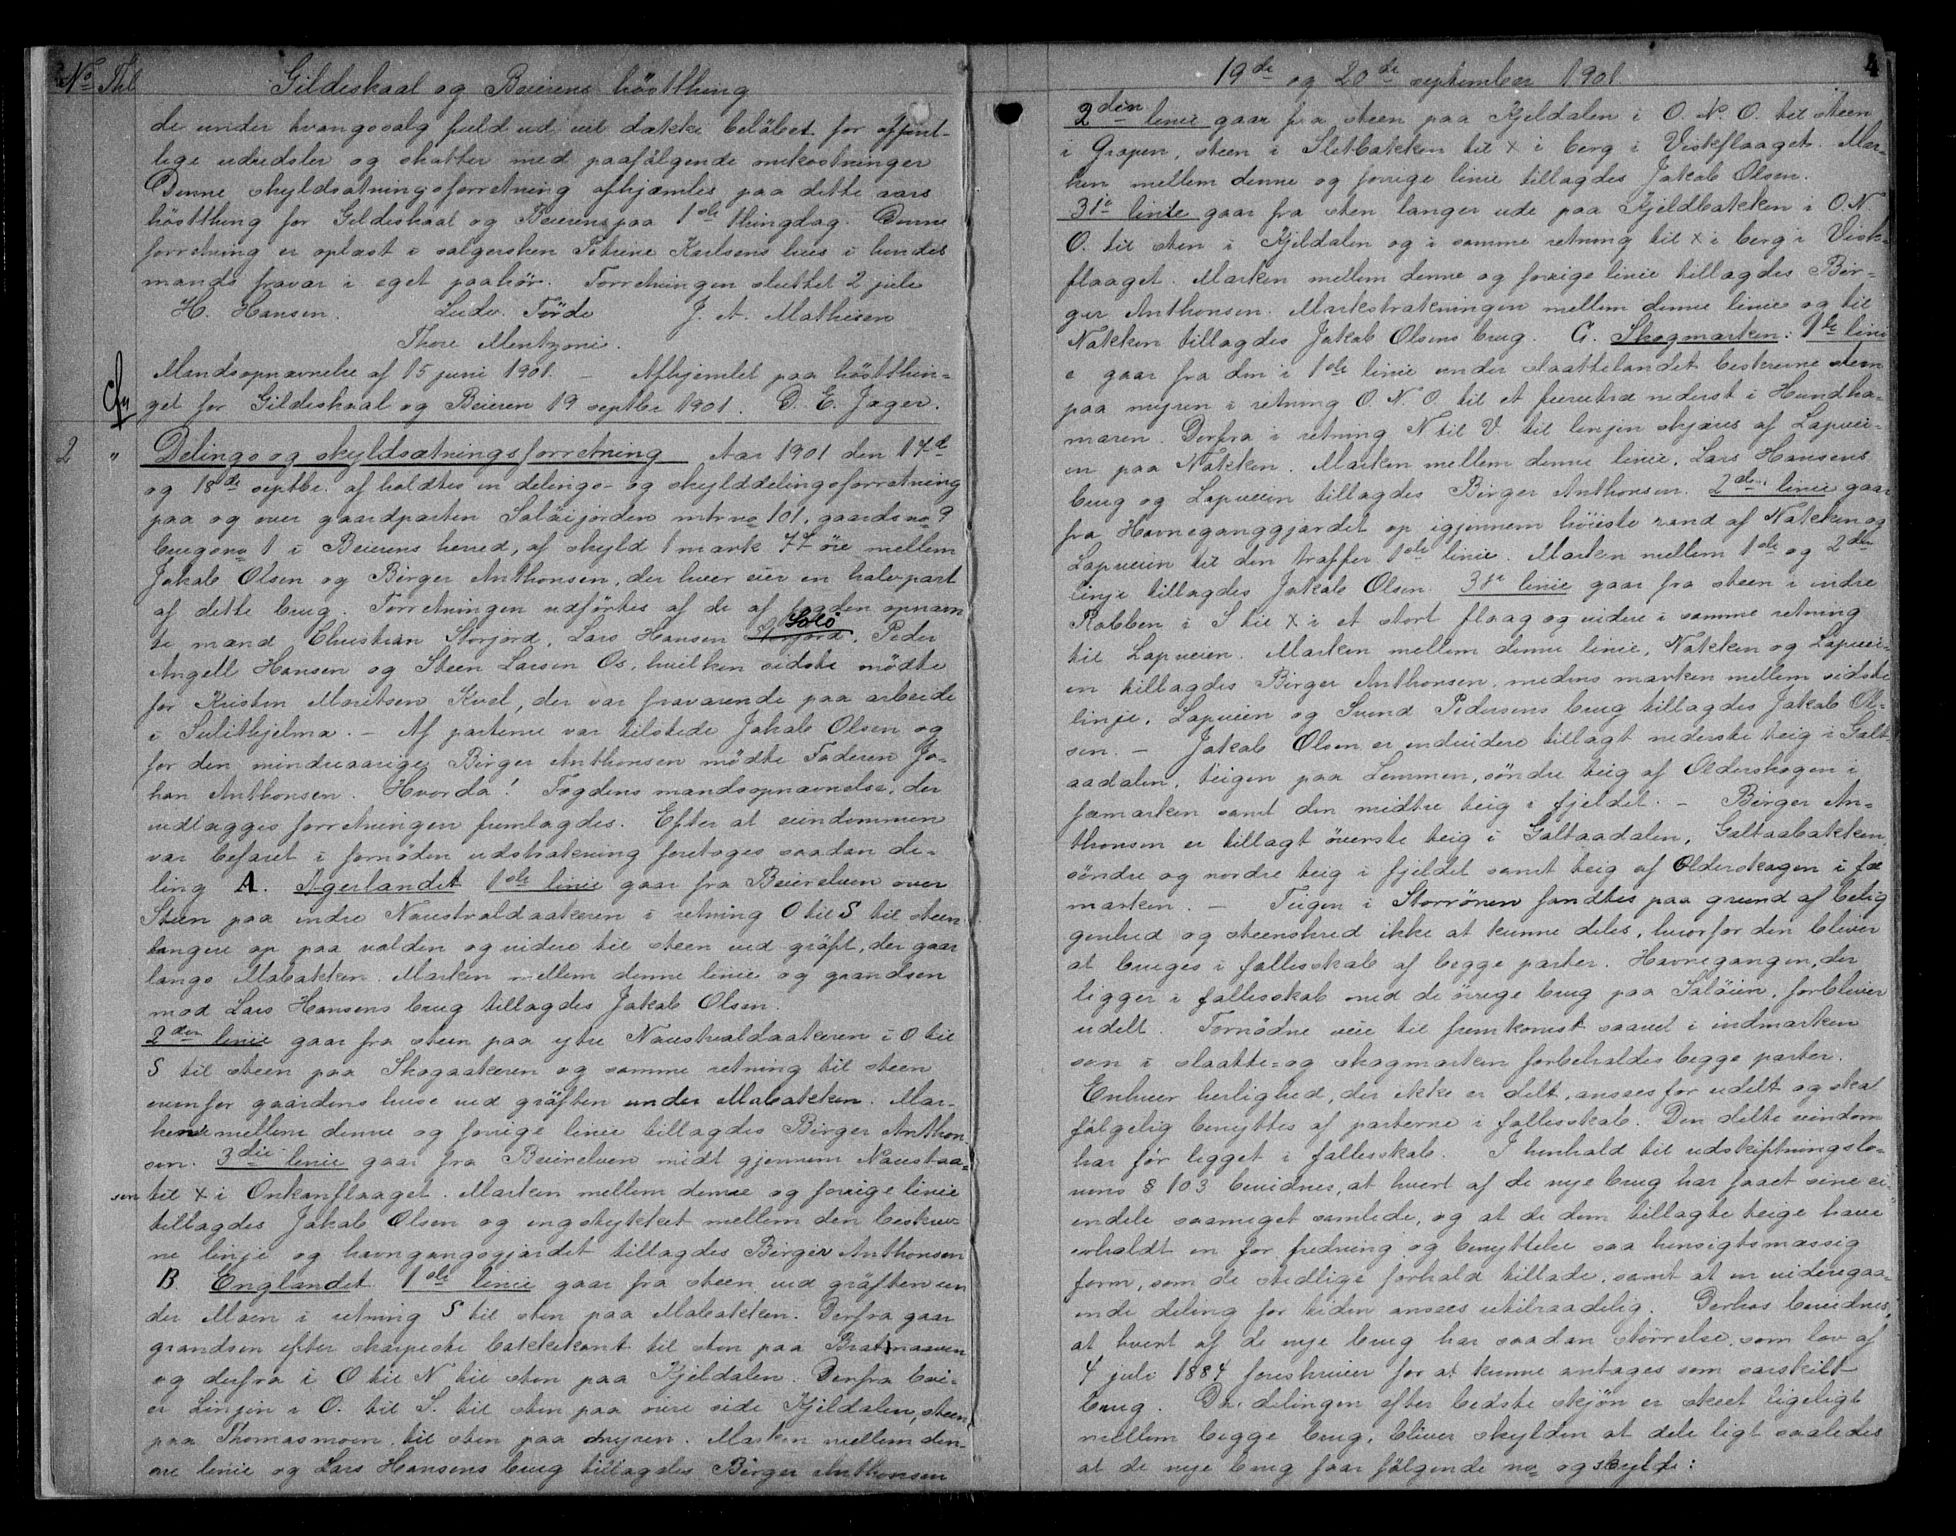 No Thl Gildeskaal og Beierens høstthing
de under tvangssalg fuld ud vil dække beløbet for offent-
lige udredsler og skatter med paafølgende omkostninger
Denne skyldsætningsforretning afhjemles paa dette aars
høstthing for Gildeskaal og Beieren paa 1ste thingdag. Denne
forretning er oplæst i sælgersken Petrine Karlsens hus i hendes
mands fravær i eget paahør. Forretningen sluttet 2 juli
H. Hansen. Ludv. Förde J. A. Mathisen
Thore Mentzoni.
Mandsopnævnelse af 15 juni 1901. – Afhjemlet paa høstthin-
get for Gildeskaal og Beieren 19 septbr 1901. D. E. Jager.
2 " Delings og skyldsætningsforretning Aar 1901 den 17de
og 18de septbr. afholdtes en delings- og skylddelingsforretning
paa og over gaardparten Saløijorden mtr no 101, gaards no 9
brugsno 1 i Beierens herred, af skyld 1 mark 77 øre mellem
Jakob Olsen og Birger Anthonsen, der hver eier en halvpart
af dette brug. Forretningen udførtes af de af fogden opnævn
te mænd Christian Storjord, Lars Hansen Storjord Solö, Peder
Angell Hansen og Steen Larsen Os, hvilken sidste mødte
for Kristen Moritsen Kvæl, der var fraværende paa arbeide
i Sulithjelma. – Af parterne var tilstede Jakob Olsen og
for den mindreaarige Birger Anthonsen mødte Faderen Jo-
han Anthonsen. Hvorda! Fogdens mandsopnævnelse, der
vedlægges forretningen fremlagdes. Efter at eiendommen
var befaret i fornøden udstrækning foretoges saadan de-
ling A. Agerlandet 1ste linie gaar fra Beierelven over
Steen paa indre Naustvoldaakeren i retning O til S til steen
længere op paa volden og videre til steen ved grøft, der gaar
langs Mobakken. Marken mellem denne linie og grændsen
mod Lars Hansens brug tillagdes Jakob Olsen.
2den linie gaar fra steen paa ytre Naustvoldaakeren i O til
S til steen paa Skogaakeren og samme retning til steen
ovenfor gaardens huse ved grøften under Mobakken. Mar-
kene mellem denne og forrige linie tillagdes Birger Anthon
sen. 3die linie gaar fra Beierelven midt gjennem Naustaa-
sen til x i Onkanflaaget. Marken mellem denne og forrige linie
tillagdes Jakob Olsen og engstykket mellem den beskrev-
ne linje og havngangsgjærdet tillagdes Birger Anthonsen
B. Englandet 1ste linie gaar fra steen ved grøften un
der Moen i retning S til sten paa Mobakken. Derfra gaar
grændsen efter skarpeste bakkekant til sten paa Bratmaaven
og derfra i O til N til sten paa Kjeldalen. Derfra bøi-
er Linjen i O. til S. til sten paa øvre side Kjeldalen, steen
paa Thomasmoen til sten paa myren. Marken mellem den-
ne linie og Lars Hansens brug tillagdes Birger Anthonsen
19de og 20de september 1901 4
2den linie gaar fra steen paa Kjeldalen i O. N. O. til steen
i Gropen, steen i Sletbakken til x i berg i Viskflaaget. Mar-
ken mellem denne og forrige linie tillagdes Jakob Olsen.
3die linie gaar fra sten længer ude paa Kjeldbakken i O. N
O. til sten i Kjeldalen og i samme retning til x i berg i Visk-
flaaget. Marken mellem denne og forrige linie tillagdes Bir-
ger Anthonsen. Markstrækningen mellem denne linie og til
Nakken tillagdes Jakob Olsens brug. C. Skogmarken: 1ste lini
e gaar fra den i 1ste linie under slaattelandet beskrevne steen
paa myren i retning O. N. O. til et furutræ nederst i Hundha-
maren. Derfra i retning N til V til linjen skjæres af Lapvei-
en paa Nakken. Marken mellem denne linie, Lars Hansens
brug og Lapveien tillagdes Birger Anthonsen. 2den linie gaar
fra Havneganggjærdet op igjennem høieste rand af Nakken og
Lapveien til den træffer 1ste linie. Marken mellem 1ste og 2den
linje tillagdes Jakob Olsen. 3die linie gaar fra steen i indre
Rabben i S til x i et stort flaag og videre i samme retning
til Lapveien. Marken mellem denne linie, Nakken og Lapvei-
en tillagdes Birger Anthonsen, medens marken mellem sidste
linje, Lapveien og Svend Pedersens brug tillagdes Jakob Ol-
sen. – Jakob Olsen er endvidere tillagt nederste teig i Galt
aadalen, teigen paa Lemmen, søndre teig af Olderskogen i
fæmarken samt den midtre teig i fjeldet. – Birger An-
thonsen er tillagt øverste teig i Galtaadalen, Galtaabakken
søndre og nordre teig i fjeldet samt teig af Olderskogen i fæ
marken. – Teigen i Storrönen fandtes paa grund af belig
genhed og steenskred ikke at kunne deles, hvorfor den bliver
at bruges i fællesskab af begge parter. Havnegangen, der
ligger i fællesskab med de øvrige brug paa Saløien, forbliver
udelt. Fornødne veie til fremkomst saavel i indmarken
som i slaatte- og skogmarken forbeholdes begge parter.
Enhver herlighed, der ikke er delt, ansees for udelt og skal
følgelig benyttes af parterne i fællesskab. Den delte eiendom
har før ligget i fællesskab. I henhold til udskiftningslo-
vens § 103 bevidnes, at hvert af de nye brug har faaet sine ei-
endele saameget samlede, og at de dem tillagte teige have
erholdt en for fredning og benyttelse saa hensigtsmæssig
form, som de stedlige forhold tillade, samt at en videregaa-
ende deling for tiden ansees utilraadelig. Derhos bevidnes,
at hvert af de nye brug har saadan størrelse, som lov af
4 juli 1884 foreskriver for at kunne antages som særskilt
brug. Da delingen efter bedste skjøn er skeet ligeligt
mellem begge brug, bliver skylden at dele ligt saaledes
at de nye brug faar følgende no og skyld: